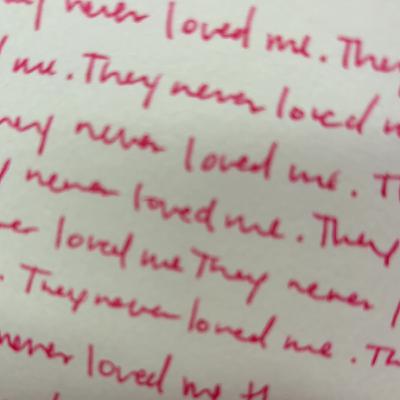 never loved me. They
me. They never loved
never loved me.
never loved me. They
loved me They never
. They never loved me.
never loved me